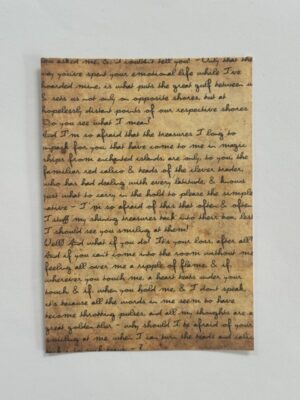 you asked me, & I couldn't tell you! - Only that the
way you've spent your emotional life while I've
hoarded mine, is what puts the great gulf between us
& sets us not only on opposite shores, but at
hopelessly distant points of our respective shores
Do you see what I mean?
And I'm so afraid that the treasures I long to
unpack for you, that have come to me in magic
ships from enchanted islands, are only, to you, the
familiar red calico & beads of the clever trader,
who has had dealing with every latitude, & knows
just what to carry in the hold to please the simple
native - I'm so afraid of this, that often & often
I stuff my shining treasures back into their box, lest
I should see you smiling at them!
Well! And what if you do? It's your loss, after all!
And if you can't come into the room without my
feeling all over me a ripple of flame, & if,
wherever you touch me, a heart beats under your
touch, & if, when you hold me, & I don't speak,
it's because all the words in me seem to have
become throbbing pulses, and all my thoughts are a
great golden blur - why should I be afraid of your
smiling at me, when I can turn the beads and calico